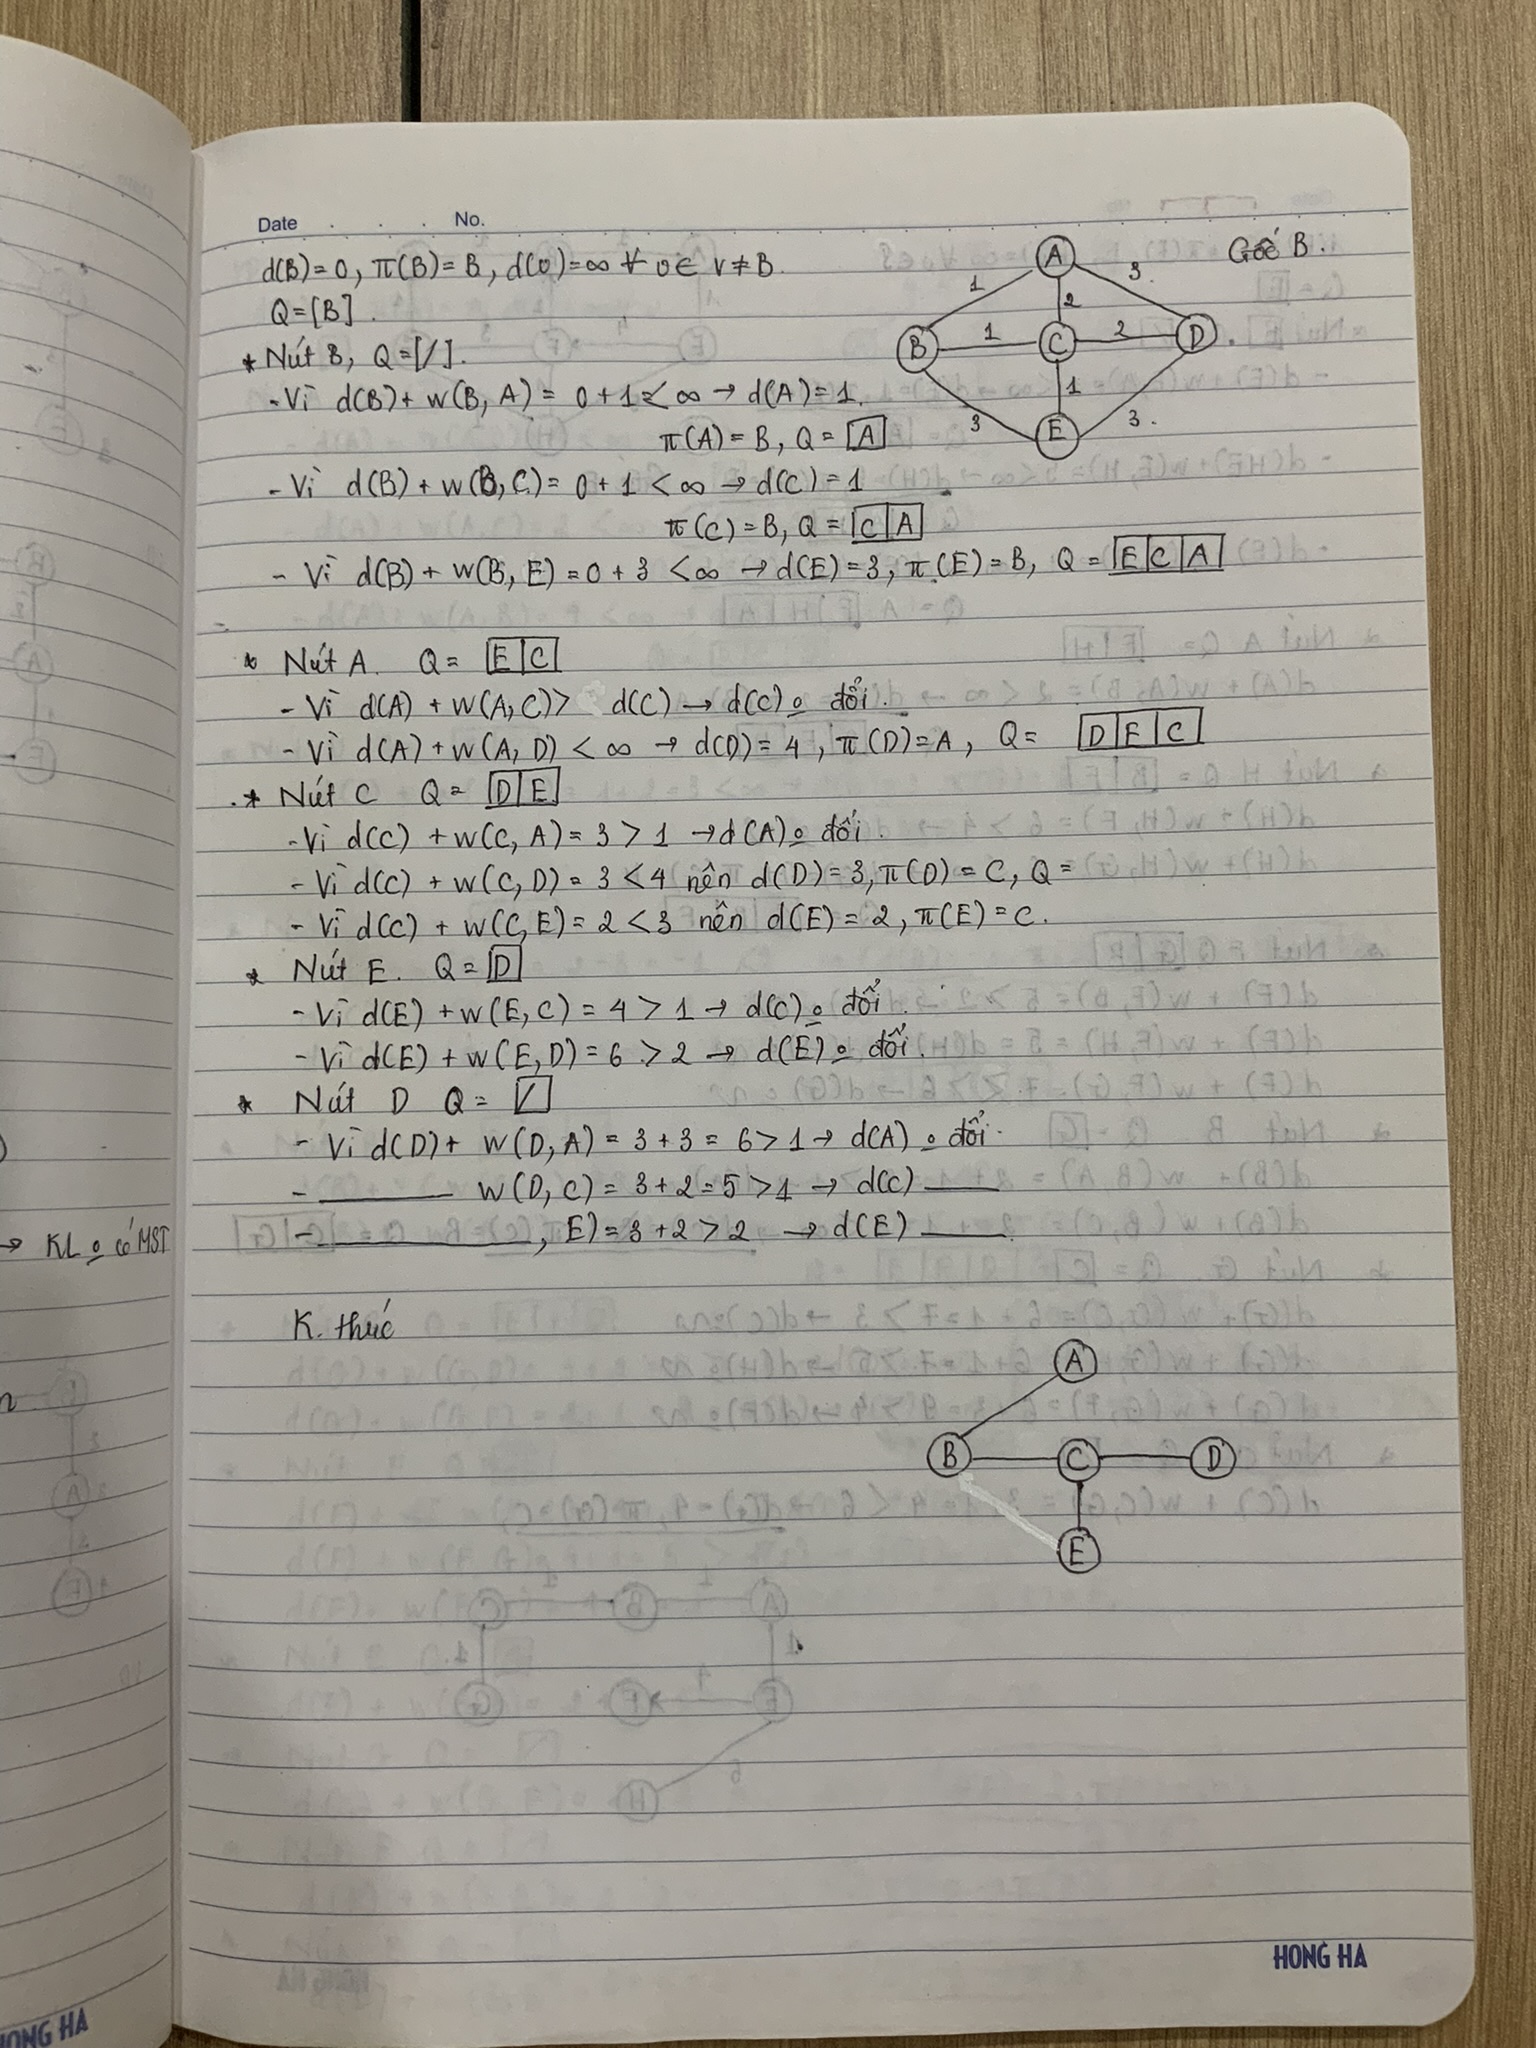 Date . . . . No.
d(B)=0, π(B)=B, d(v)=∞ ∀ v∈ V≠B.
Gốc B.
Q=[B].
A
1
2
3.
B
1
C
2
D
3
1
3.
E
* Nút B, Q=[/].
- Vì d(B)+ w(B, A) = 0+1 < ∞ → d(A)=1.
π(A)=B, Q= A
- Vì d(B) + w(B, C)= 0+1 < ∞ → d(C)=1
π(C)=B, Q= C|A
- Vì d(B) + w(B, E)=0+3 <∞ → d(E)=3, π(E)=B, Q= E|C|A
* Nút A. Q= E|C
- Vì d(A) + w(A,C)> d(C) → d(C) o đổi.
- Vì d(A)+w(A, D) < ∞ → d(D)=4, π(D)=A, Q= D|E|C
* Nút C Q= D|E
- Vì d(C) +w(C, A)=3>1 → d(A) o đổi.
- Vì d(C) +w(C,D)=3<4 nên d(D)=3, π(D)=C, Q=
- Vì d(C) + w(C,E)=2<3 nên d(E)=2, π(E)=C.
* Nút E. Q= D
- Vì d(E) +w(E,C)=4>1 → d(C) o đổi.
- Vì d(E)+w(E,D)=6>2 → d(E) o đổi.
* Nút D Q= /
- Vì d(D)+ w(D,A)=3+3=6>1 → d(A) o đổi.
- ____ w(D,C)=3+2=5>1 → d(C) ____
- ____, E)=3+2>2 → d(E) ____
→ KL o có MST
K. thúc
A
B
C
D
E
HONG HA
HONG HA